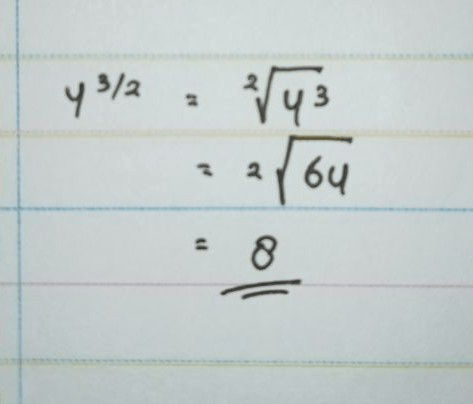 4^{3/2} = ²√4³
= ²√64
= 8